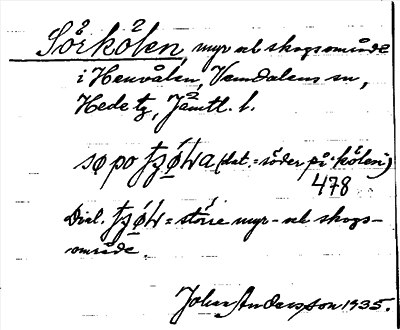 Sörkölen myr och skogsområde
i Henvålen, Vemdalens sn,
Hede tg, Jämtl. l.
sø po (dat. = söder på "kölen")
478
Dial. = större myr- och skogs-
område.
Johan Andersson 1935.